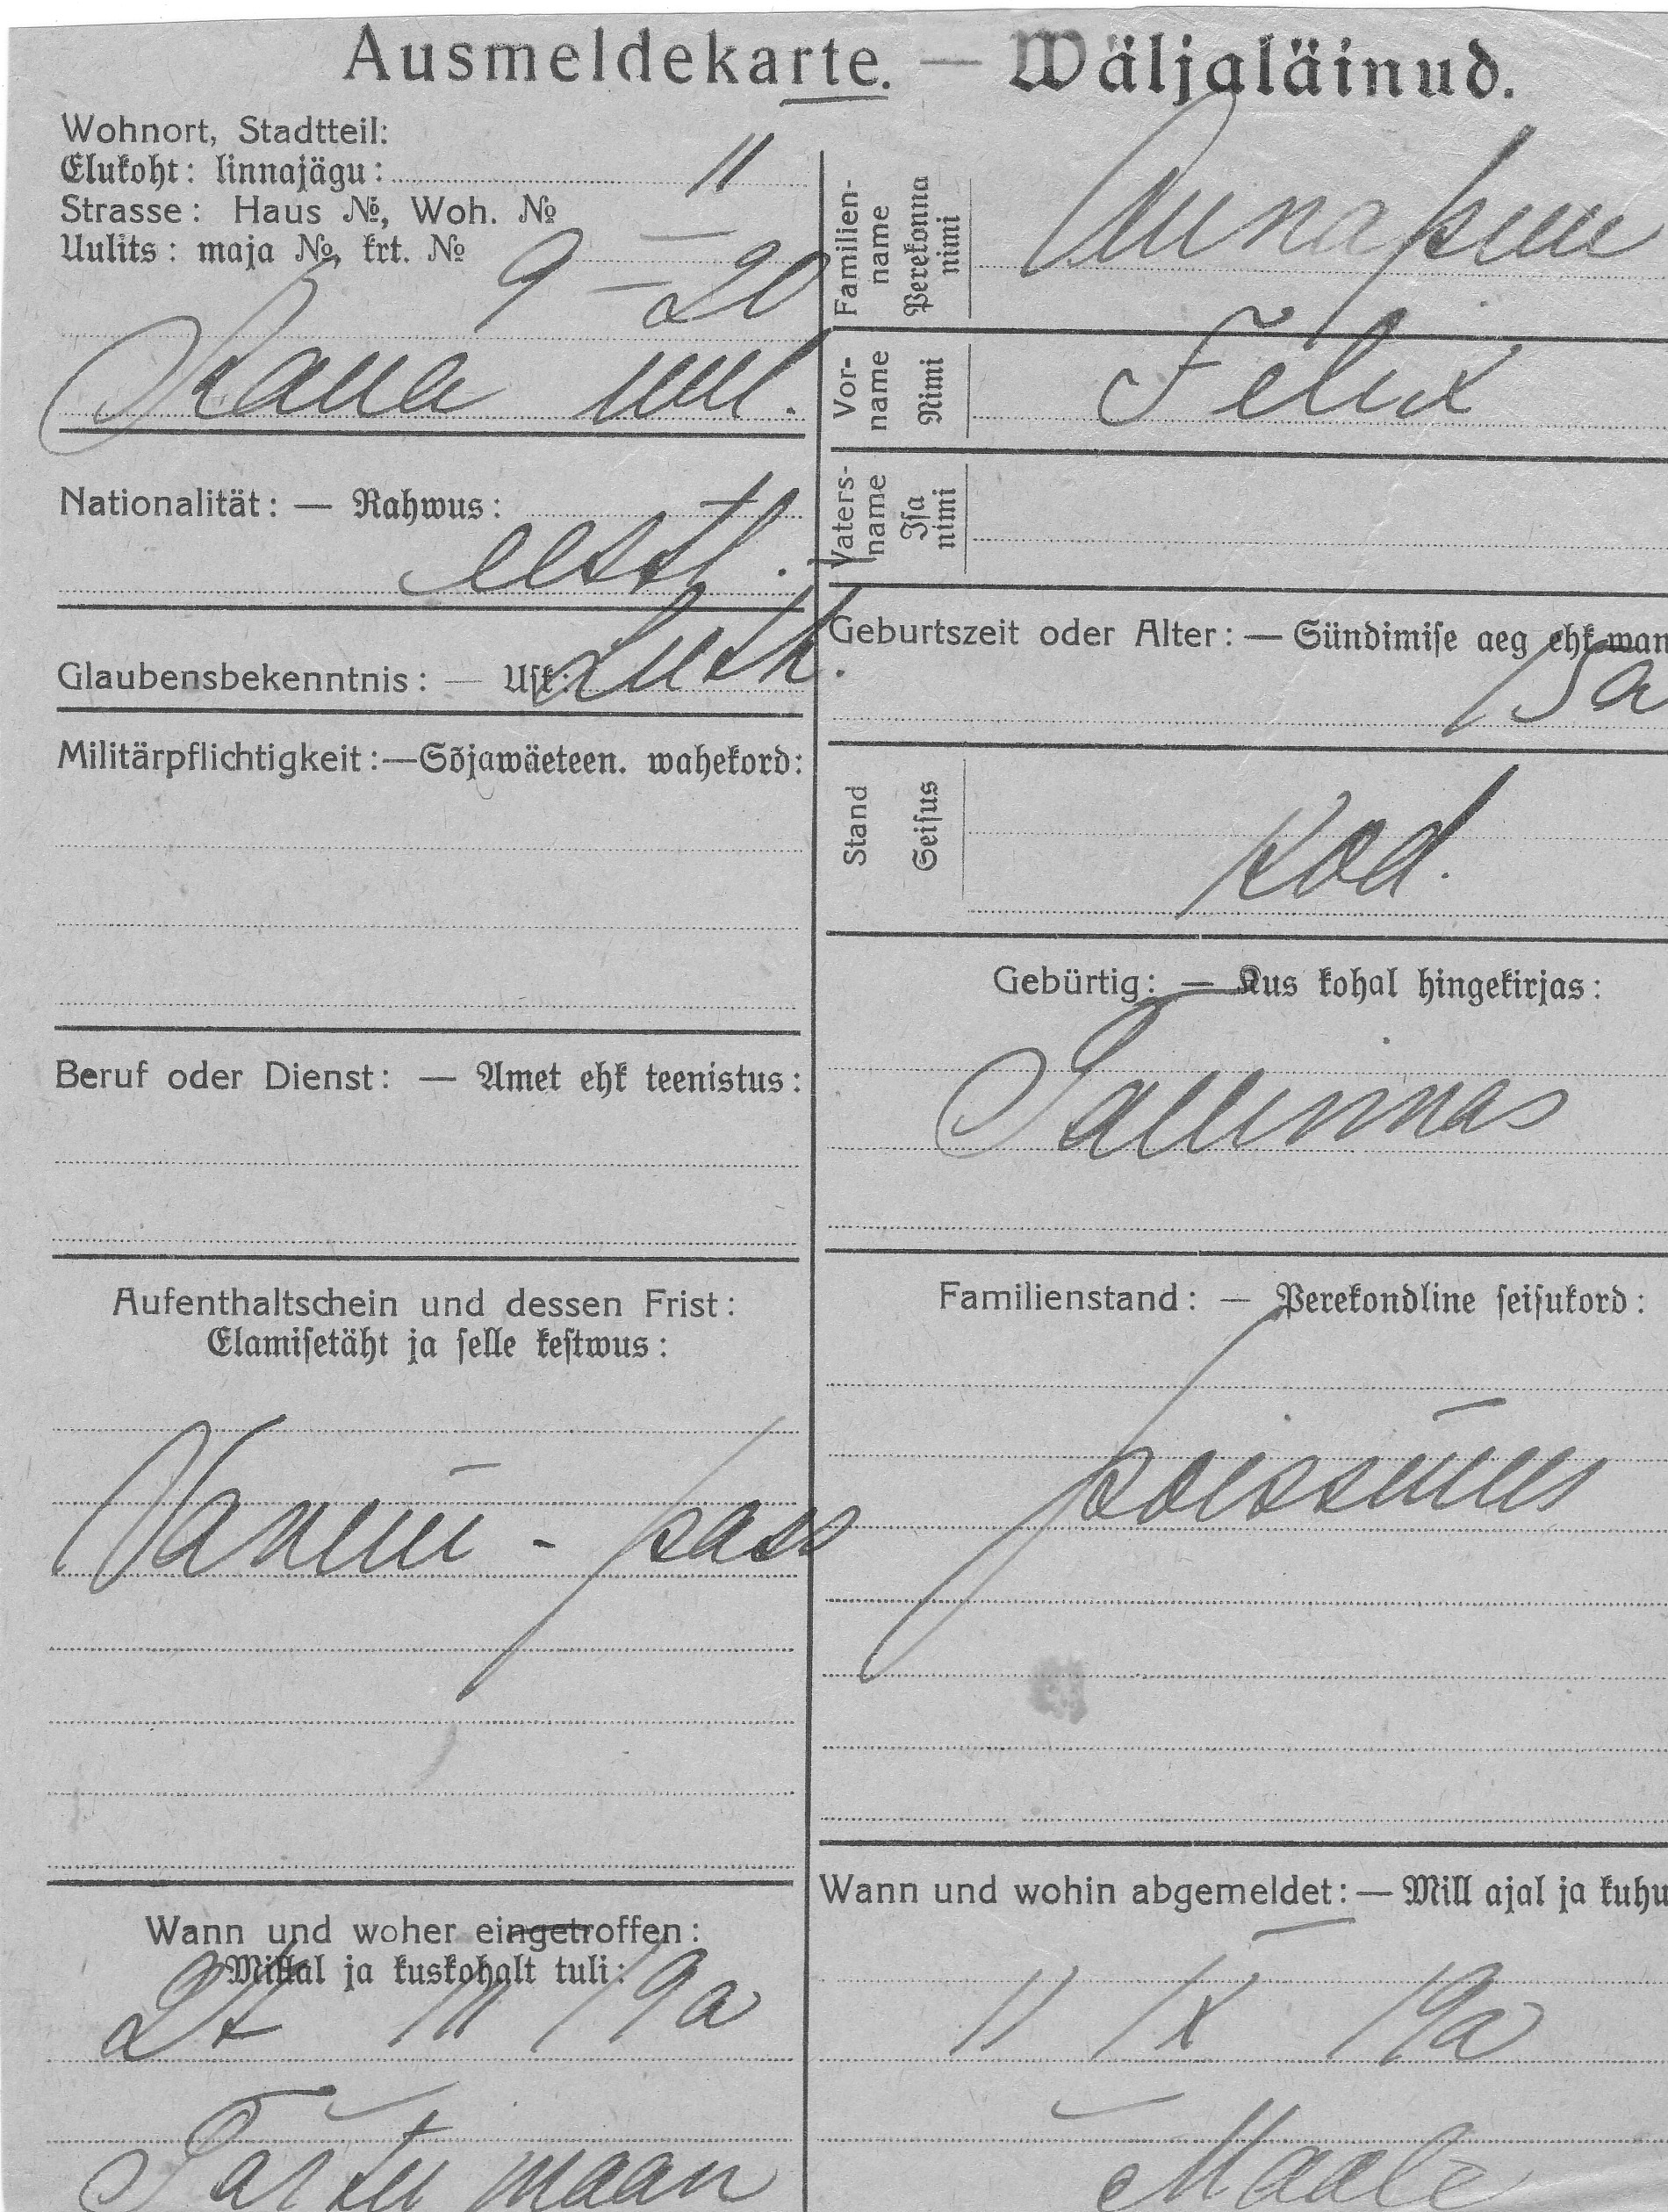 Ausmeldekarte. — Wäljaläinud.
Wohnort, Stadtteil:
Elukoht: linnajägu: II
Strasse: Haus №, Woh. №
Uulits: maja №, krt. № 9 – 20
uul.
Nationalität: — Rahwus:
eestl.
Glaubensbekenntnis: — Usk: Luth.
Militärpflichtigkeit:—Sõjawäeteen. wahekord:
Beruf oder Dienst: — Amet ehk teenistus:
Aufenthaltschein und dessen Frist:
Elamisetäht ja selle kestwus:
- pass
Wann und woher eingetroffen:
Millal ja kuskohalt tuli:
III 19 a
Tartumaan
Familien-
name
Perekonna
nimi
Vor-
name
Nimi
Felix
Vaters-
name
Isa
nimi
Geburtszeit oder Alter: — Sündimise aeg ehk wan
15 a
Stand
Seisus
Kod.
Gebürtig: — Kus kohal hingekirjas:
Tallinnas
Familienstand: — Perekondline seisukord:
poissmees
Wann und wohin abgemeldet: — Mill ajal ja kuhu
11 IX 19 a
Maale